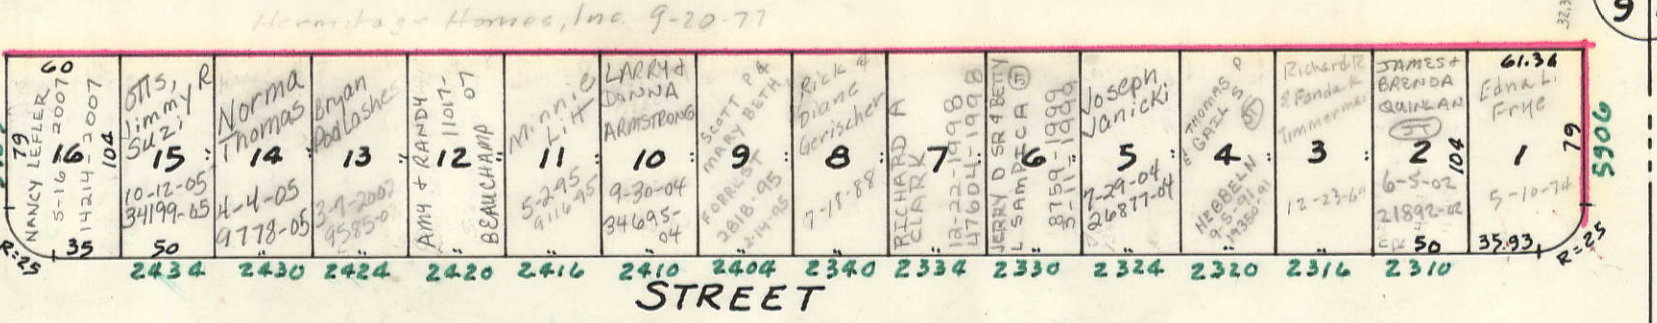 Hermitage Homes, Inc. 9-20-77
32.3
9
60
79
NANCY LEFLER
5-16-2007
14214-2007
16
104
35
R=25
OTTS,
Jimmy R
Suzi
15
10-12-05
34199-05
50
2434
Norma
Thomas
14
4-4-05
9778-05
2430
Bryan
13
3-7-2002
9585-02
2424
AMY & RANDY
BEAUCHAMP
11017-
07
12
2420
Minnie
Litt
11
5-2-95
9116-95
2416
LARRY &
DONNA
ARMSTRONG
10
9-30-04
34695-
04
2410
SCOTT P &
MARY BETH
9
FORREST
2818-95
2-14-95
2404
Rick &
Diane
Gerischer
8
7-18-88
2340
RICHARD A
CLARK
7
12-22-1998
47604-1998
2334
JERRY D SR & BETTY
L SAMPICA JT
6
8759-1999
5-11-1999
2330
Joseph
Janicki
5
7-29-04
26877-04
2324
THOMAS P
& GAIL S
JT
4
HEBBELN
9-5-91
19350-91
2320
Richard R
& Fonda K
Timmerman
3
12-23-69
2316
JAMES &
BRENDA
QUINLAN
JT
2
104
6-5-02
21892-02
50
2310
61.36
Edna L.
Frye
1
79
5-10-74
35.93
R=25
5906
STREET